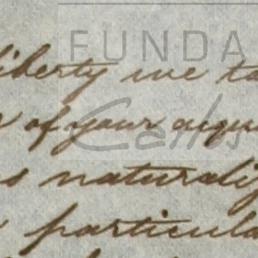 FUNDA
liberty we ta
of your acqu
Carlos
s naturaliz
particula